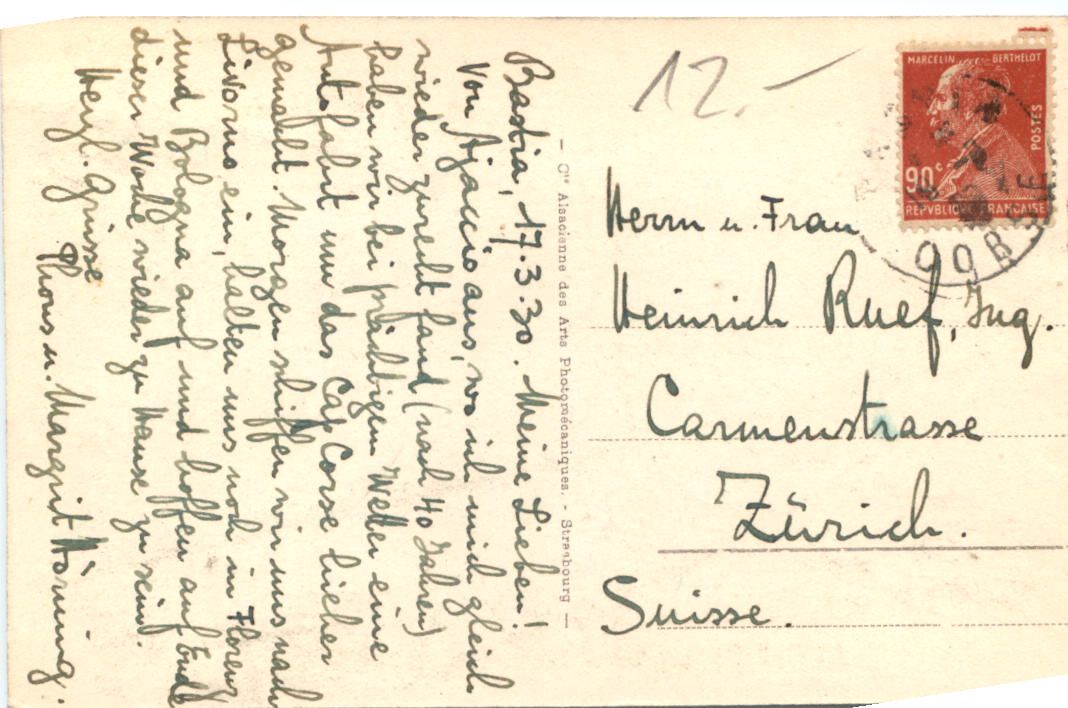 Bastia, 17.3.30. Meine Lieben!
Von Ajaccio aus, wo ich mich gleich
wieder zurecht fand (nach 40 Jahren)
haben wir bei prächtigem Wetter eine
Autofahrt um das Cap Corse hieher
gemacht. Morgen schiffen wir uns nach
Livorno ein, halten uns noch in Florenz
und Bologna auf und hoffen auf Ende
dieser Woche wieder zu Hause zu sein.
Herzl. Grüsse
u. Margrit Hörning.
— Cie Alsacienne des Arts Photomécaniques. - Strasbourg —
12.-
MARCELIN BERTHELOT
POSTES
90c
REPVBLIQVE FRANCAISE
Herrn u. Frau
Heinrich Ruef, Ing.
Carmenstrasse
Zürich.
Suisse.